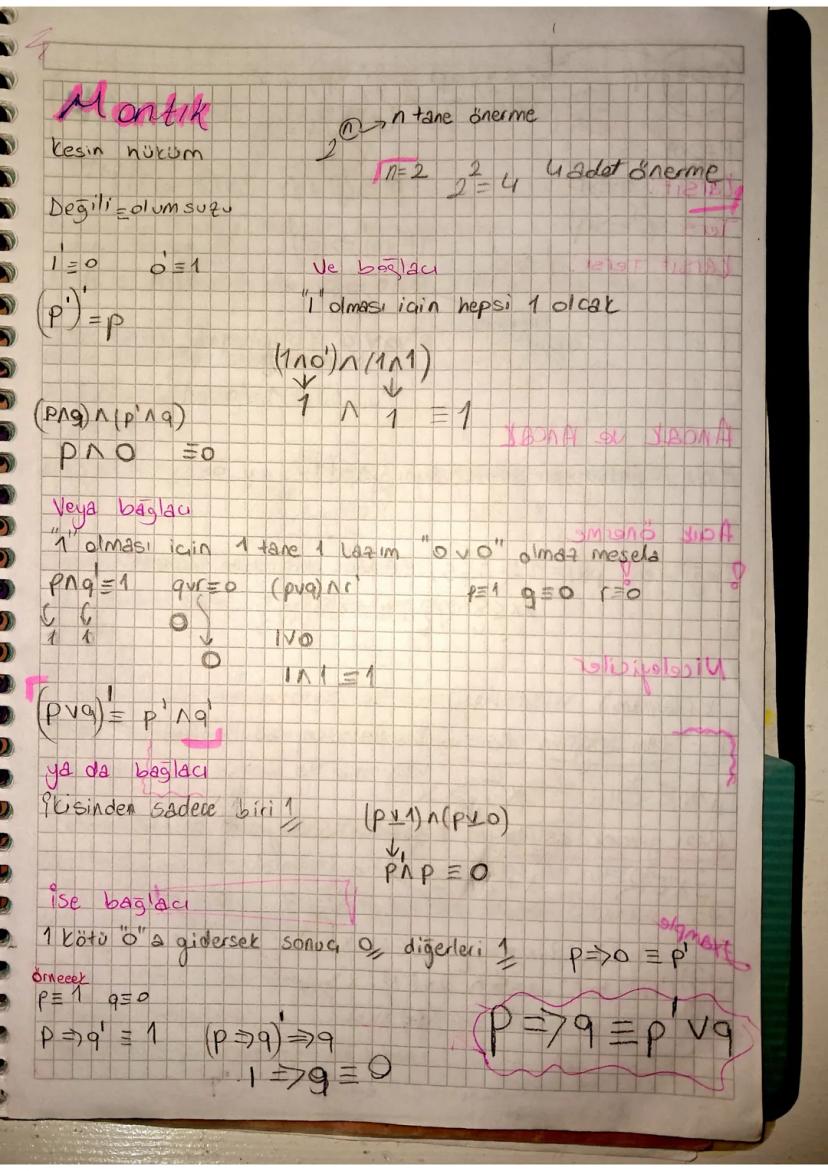 Mantık
2ⁿ → n tane önerme
Kesin hüküm
n=2 2²=4 4 adet önerme
Değili=olumsuzu
1'≡0 0'≡1
(p')'=p
Ve bağlacı
"1" olması için hepsi 1 olcak
(1∧0')∧(1∧1)
1 ∧ 1 ≡ 1
(p∧q)∧(p'∧q)
p∧0 ≡0
Veya bağlacı
"1" olması için 1 tane 1 lazım "0∨0" olmaz mesela
p∧q'≡1 q∨r≡0 (p∨q)∧r' p≡1 q≡0 r≡0
1 1 0 0
1∨0
1∧1≡1
(p∨q)'≡ p'∧q'
ya da bağlacı
İkisinden sadece biri 1
(p⊻1)∧(p⊻0)
p'∧p ≡ 0
ise bağlacı
1 kötü "0"a gidersek sonuç 0, diğerleri 1
p=>0 ≡ p'
örneeek
p≡1 q≡0
p=>q' ≡ 1 (p=>q)'=>q
1=>q≡0
p=>q≡p'∨q